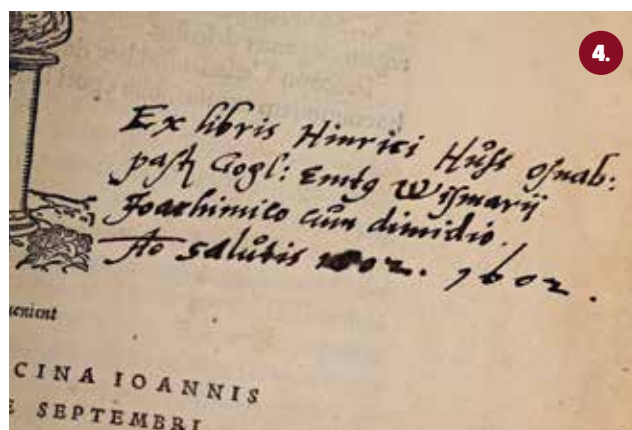 4.
Ex libris Hinrici Hůss osnab:
pastꝫ Gogl: Emtꝰ Wismarij
Joachimico cum dimidio.
Ao salůtis 1602. 1602.
uenient
CINA IOANNIS
E SEPTEMBRI